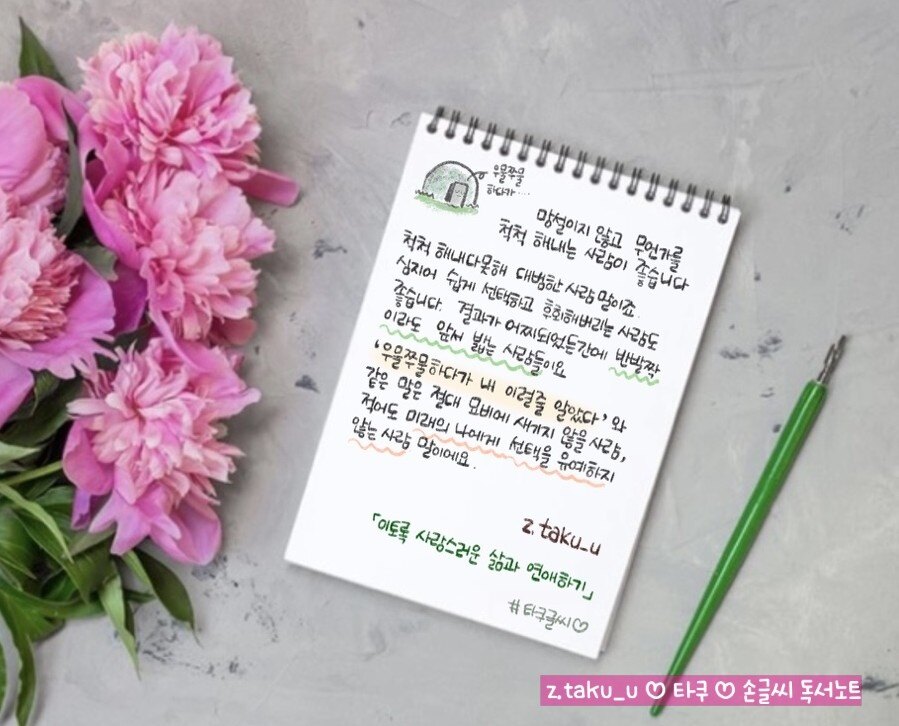 우물쭈물
하다가....
망설이지 않고 무언가를
척척 해내는 사람이 좋습니다
척척 해내다못해 대범한 사람 말이죠.
심지어 쉽게 선택하고 후회해버리는 사람도
좋습니다. 결과가 어찌되었든간에 반발짝
이라도 앞서 밟는 사람들이요
'우물쭈물하다가 내 이럴줄 알았다' 와
같은 말은 절대 묘비에 새기지 않을 사람,
적어도 미래의 나에게 선택을 유예하지
않는 사람 말이에요.
z.taku_u
「이토록 사랑스러운 삶과 연애하기」
#타쿠글씨♡
z.taku_u ♡ 타쿠 ♡ 손글씨 독서노트